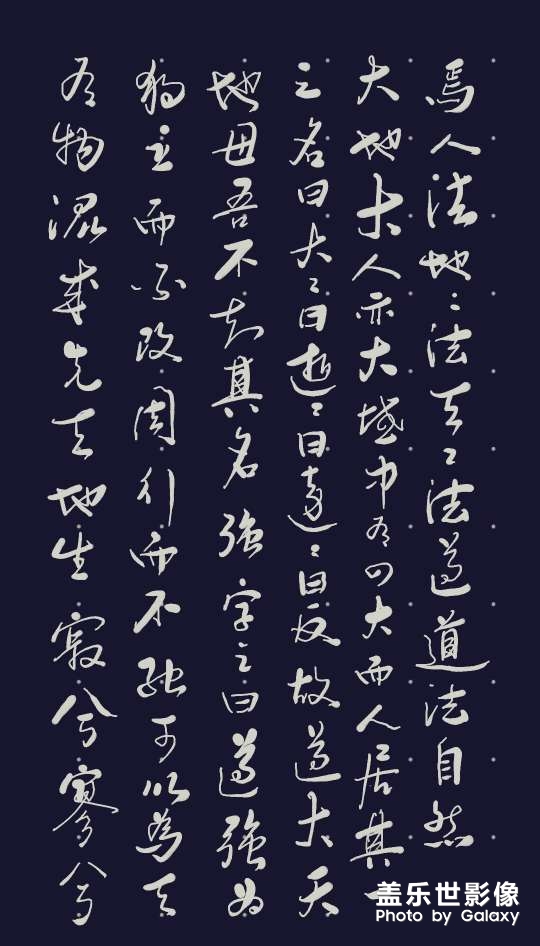 有物混成先天地生寂兮寥兮
独立而不改周行而不殆可以為天
地母吾不知其名強字之曰道強為
之名曰大〻曰逝〻曰遠〻曰反故道大天
大地大人亦大域中有四大而人居其一
焉人法地〻法天〻法道道法自然
盖乐世影像
Photo by Galaxy